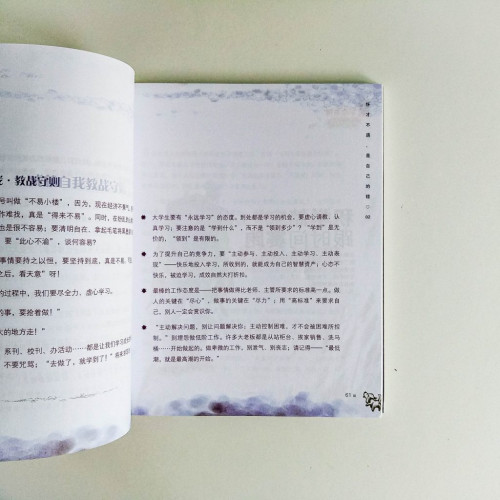 教战守则
号叫做“不易小楼”，因为，现在经济不景气
作难找，真是“得来不易”。同时，在
也是很不容易；要清明自在、拿起毛笔
要“此心不逾”，谈何容易？
事情要持之以恒，要坚持到底，真是不易，
之后，看天意”呀！
的过程中，我们要尽全力，虚心学习。
要，要抢着做！”
大的地方走！”
系刊、校刊、办活动……都是让我们学习
不要咒骂；“去做了，就学到了！”
大学生要有“永远学习”的态度，到处都是学习的机会，要虚心请教、认
真学习；要注意的是“学到什么”，而不是“领到多少”？“学到”是无
价的，“领到”是有限的。
为了提升自己的竞争力，要“主动参与、主动投入、主动学习、主动表
现”——快乐地投入学习，所收到的，就能成为自己的智慧资产；心态不
快乐，被迫学习，成效自然大打折扣。
最棒的工作态度是——把事情做得比老师、主管所要求的标准高一点。做
人的关键在“尽心”，做事的关键在“尽力”；用“高标准”来要求自
己，别人一定会赏识你。
“主动解决问题，别让问题解决你；主动控制困难，才不会被困难所控
制。”别埋怨做低阶工作，许多大老板都是从站柜台、挨家销售、洗马
桶……开始做起的。做卑微的工作，别泄气、别丧志；请记得——“最低
潮，就是最高潮的开始。”
怀才不遇，是自己的错